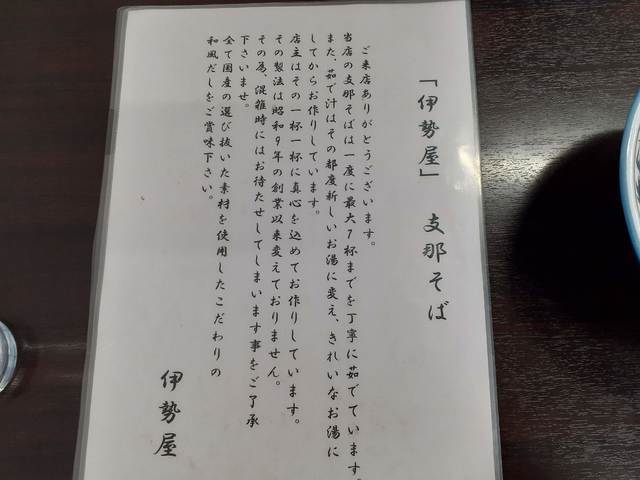 「伊勢屋」 支那そば
ご来店ありがとうございます。
当店の支那そばは一度に最大7杯までを丁寧に茹でています。
また、茹で汁はその都度新しいお湯に変え、きれいなお湯に
してからお作りしています。
店主はその一杯一杯に真心を込めてお作りしています。
その製法は昭和9年の創業以来変えておりません。
その為、混雑時にはお待たせしてしまいます事をご了承
下さいませ。
全て国産の選び抜いた素材を使用したこだわりの
和風だしをご賞味下さい。
伊勢屋